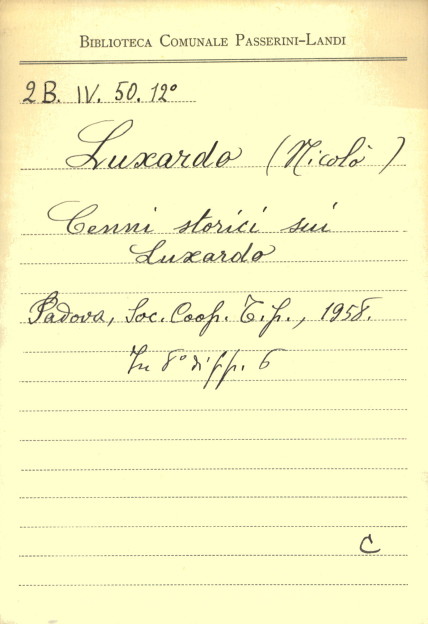 BIBLIOTECA COMUNALE PASSERINI-LANDI
2B. IV. 50. 12°
Luxardo (Nicolò)
Cenni storici sui
Luxardo
Padova, Soc. Coop. Tip., 1958.
In 8° di pp. 6
C